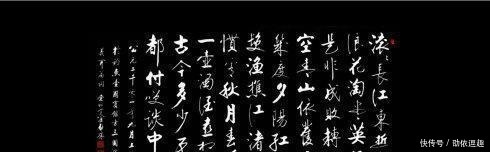 滚滚長江東逝
浪花淘尽英
是非成敗轉
空青山依舊
幾度夕陽紅
髪漁樵江渚
慣看秋月春
一壺濁酒喜相
古今多少事
都付笑談中
快传号 / 助依逗趣